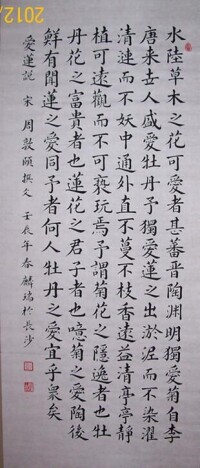 水陸草木之花可愛者甚蕃晉陶淵明獨愛菊自李
唐来世人盛愛牡丹予獨愛蓮之出淤泥而不染濯
清漣而不妖中通外直不蔓不枝香遠益清亭亭靜
植可遠觀而不可褻玩焉予謂菊花之隱逸者也牡
丹花之富貴者也蓮花之君子者也噫菊之愛陶後
鮮有聞蓮之愛同予者何人牡丹之愛宜乎眾矣
愛蓮説 宋 周敦頤撰文 壬辰年春麟瑞於長沙
2012/